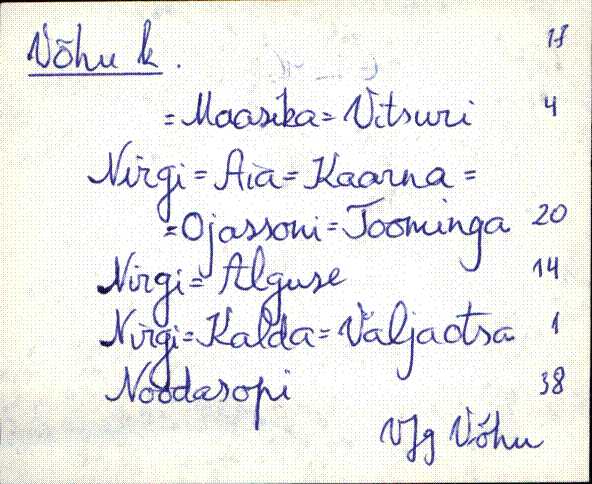 Võhu k. 17
=Maasika=Vitsuri 4
Nirgi=Aia=Kaarna=
=Ojassoni=Toominga 20
Nirgi=Alguse 14
Nirgi=Kalda=Väljaotsa 1
Noodasopi 38
VJg Võhu